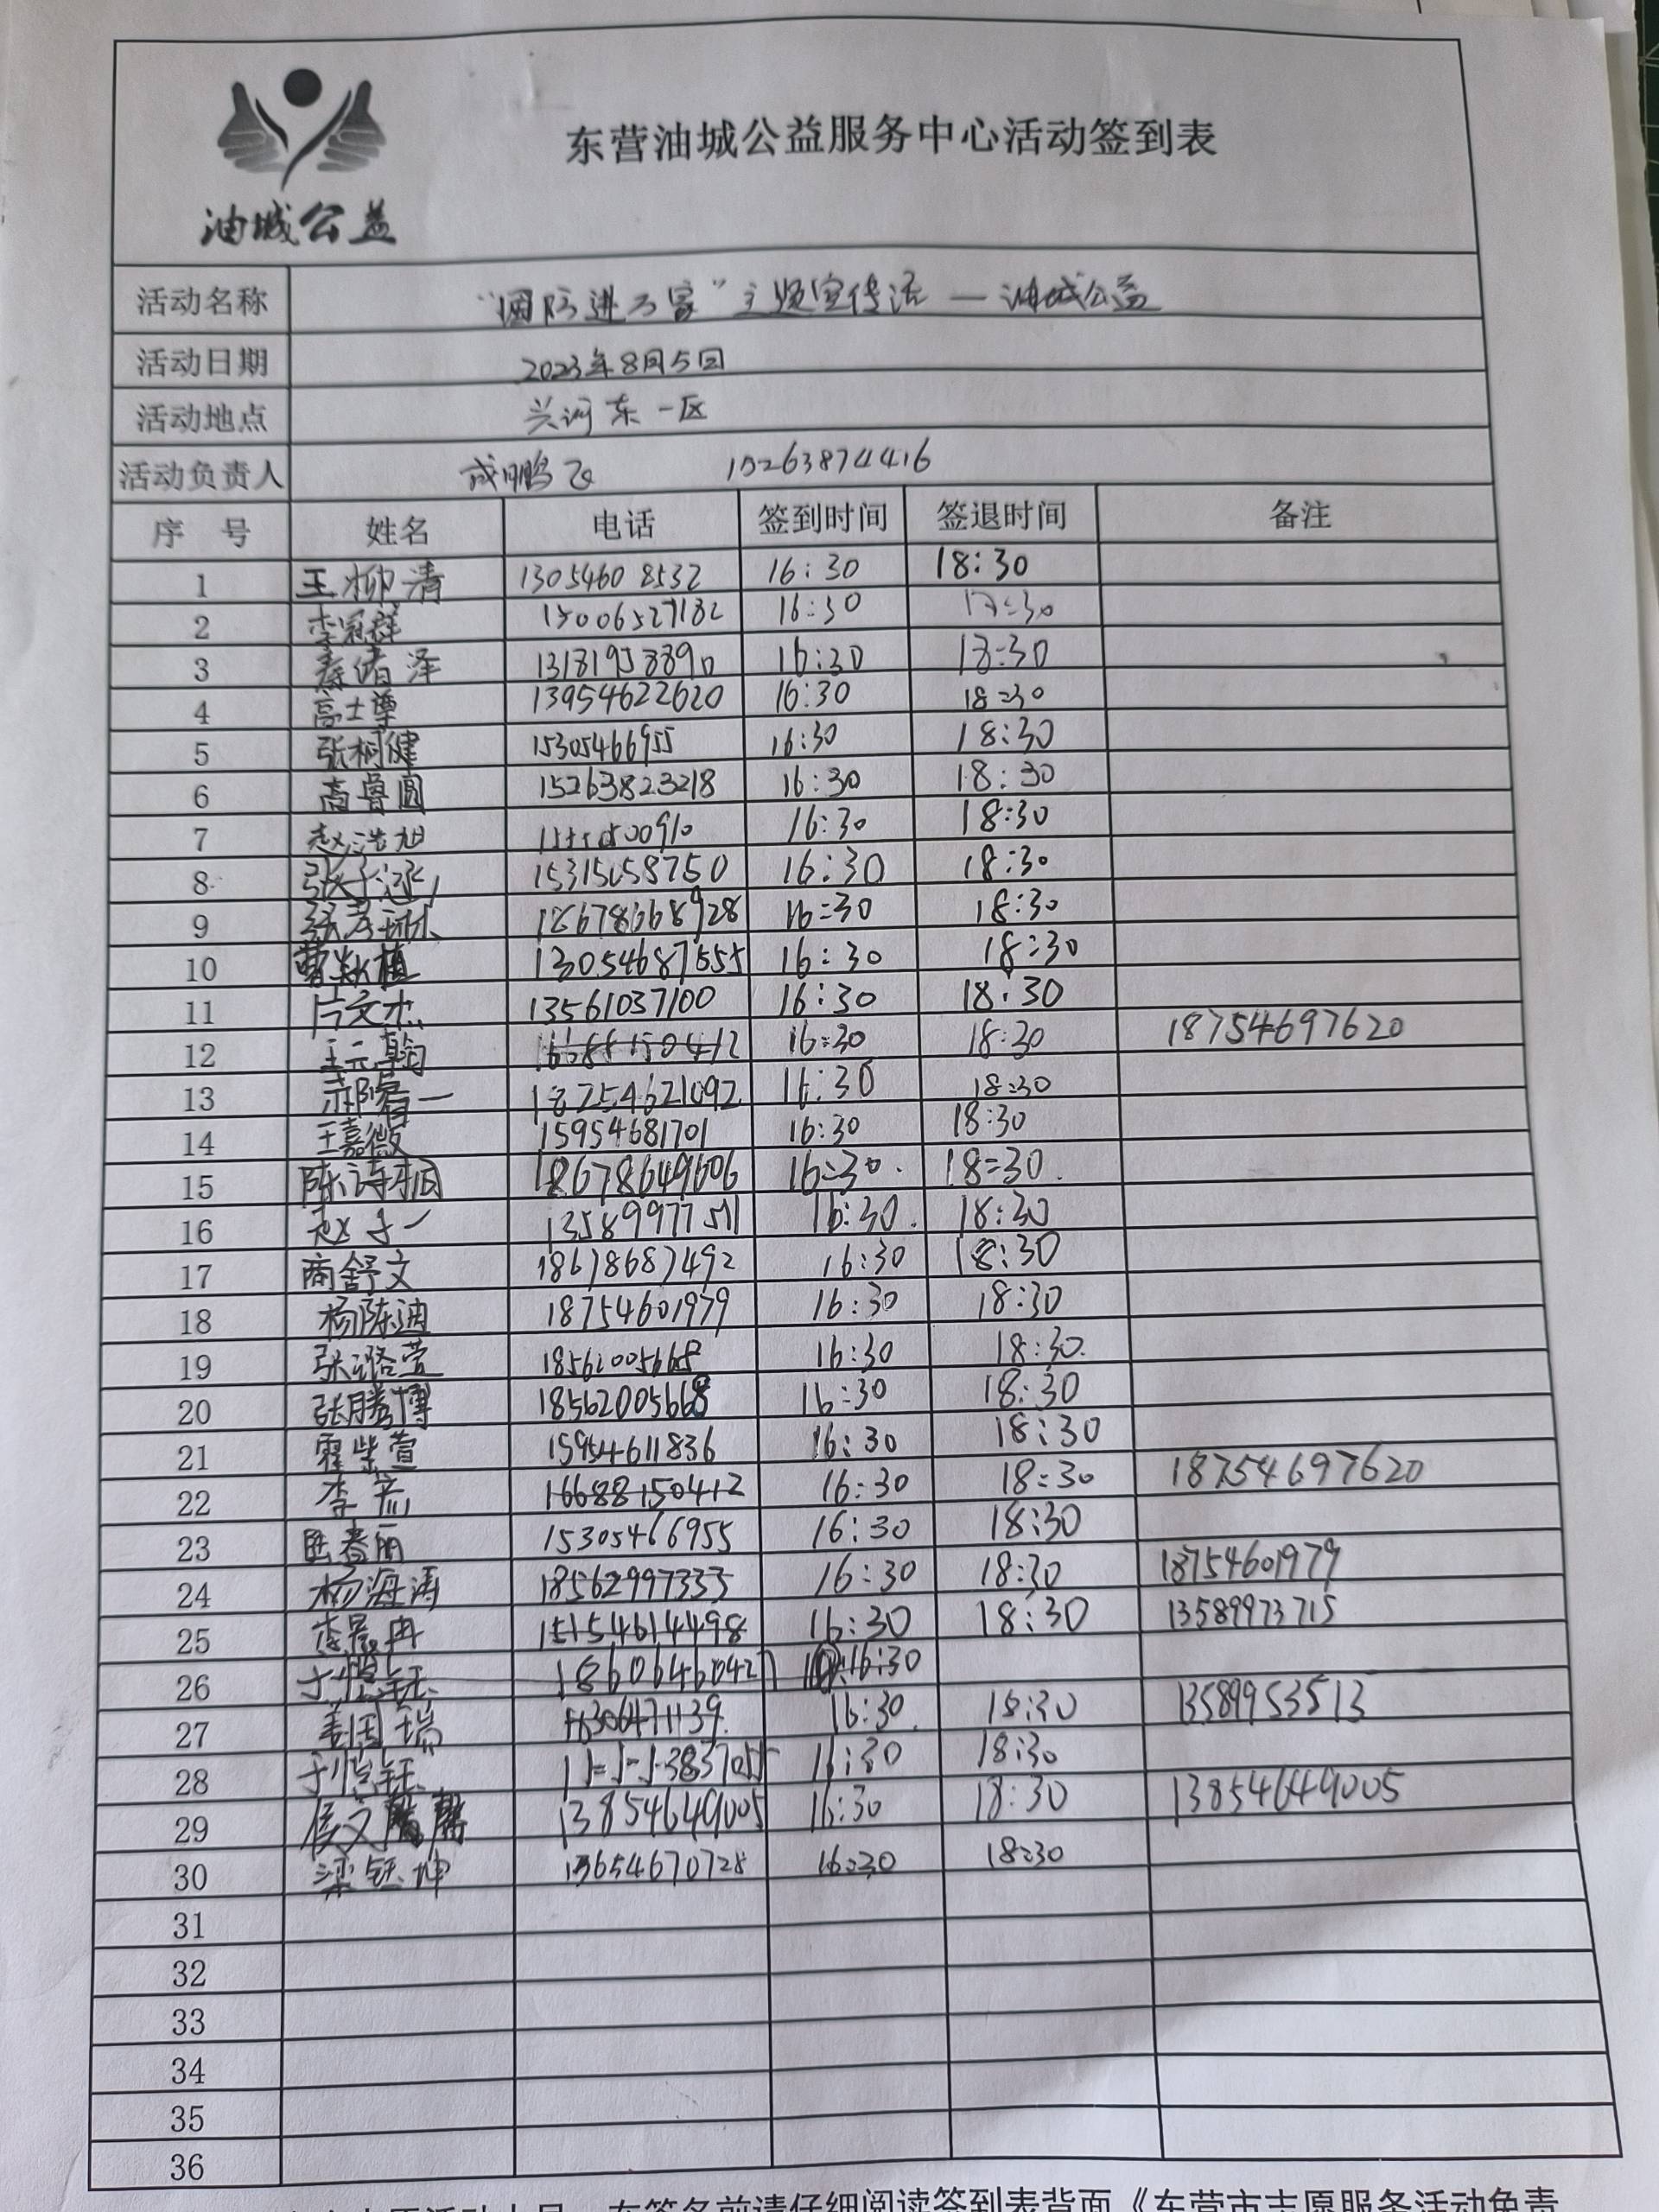 东营油城公益服务中心活动签到表
油城公益
活动名称 “国防进万家”主题宣传活 — 油城公益
活动日期 2023年8月5日
活动地点 兴河东一区
活动负责人 成鹏飞 15263874416
序 号 姓名 电话 签到时间 签退时间 备注
1 王柳清 13054608532 16:30 18:30
2 李冠群 15006527182 16:30
3 秦绪泽 13181958890 16:30 18:30
4 高士尊 13954622620 16:30 18:30
5 张桐健 15305466955 16:30 18:30
6 高睿圆 15263823218 16:30 18:30
7 赵浩旭 16:30 18:30
8 张子涵 16:30 18:30
9 18678668928 16:30 18:30
10 13054687555 16:30 18:30
11 片文杰 13561037100 16:30 18:30
12 王元翰 16688150412 16:30 18:30 18754697620
13 18254621092 16:30 18:30
14 王嘉薇 15954681701 16:30 18:30
15 陈诗桐 18678649606 16:30. 18:30.
16 赵子一 13589977511 16:30. 18:30
17 商舒文 18678687492 16:30 18:30
18 杨陈迪 18754601979 16:30 18:30
19 张潞萱 18562005668 16:30 18:30.
20 张腾博 18562005668 16:30 18:30
21 霍紫萱 15954611836 16:30 18:30
22 李 16688150412 16:30 18:30 18754697620
23 春丽 15305466955 16:30 18:30
24 杨海涛 18562997333 16:30 18:30 18754601979
25 李晨冉 15154614498 16:30 18:30 13589973715
26 于恺钰 18606460427 16:30
27 姜国瑞 16:30 18:30 13589953513
28 于恺钰 16:30 18:30
29 侯文 13854649005 16:30 18:30 13854649005
30 梁钰坤 13654670728 16:30 18:30
31
32
33
34
35
36
在签名前请仔细阅读签到表背面《东营市志愿服务活动免责